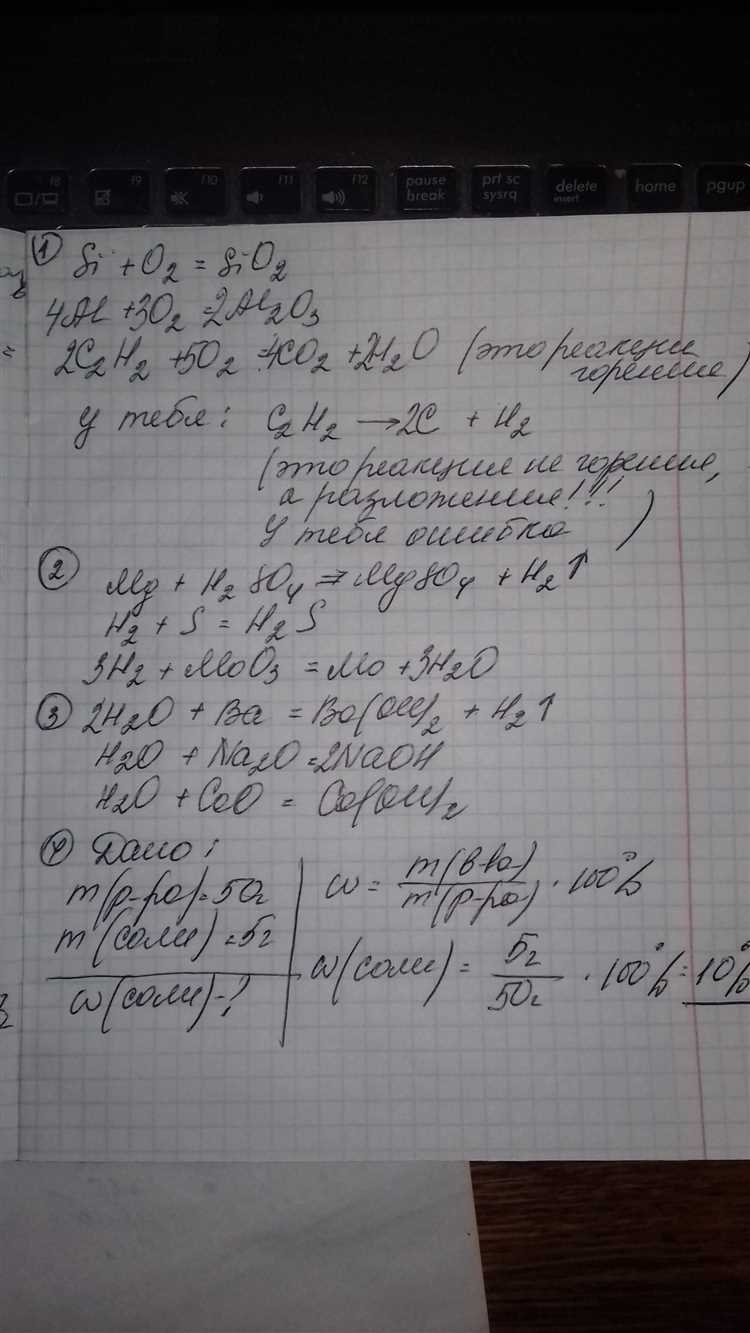 f8 f9 f10 f11 f12 pause break prt sc sysrq delete insert home pgup
① Si + O₂ = SiO₂
4Al + 3O₂ = 2Al₂O₃
=
2C₂H₂ + 5O₂ = 4CO₂ + 2H₂O (это реакции
горение)
у тебя: C₂H₂ → 2C + H₂
(это реакция не горения,
а разложения!!!
У тебя ошибка)
② Mg + H₂SO₄ = MgSO₄ + H₂↑
H₂ + S = H₂S
3H₂ + MoO₃ = Mo + 3H₂O
③ 2H₂O + Ba = Ba(OH)₂ + H₂↑
H₂O + Na₂O = 2NaOH
H₂O + CaO = Ca(OH)₂
④ Дано:
m(р-ра) = 50г
m(соли) = 5г
ω(соли) - ?
ω = m(в-ва) / m(р-ра) · 100%
ω(соли) = 5г / 50г · 100% = 10%